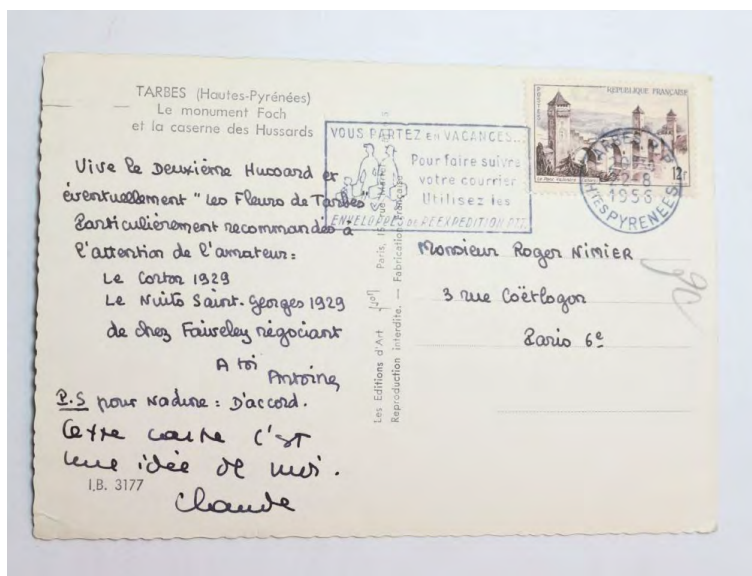 TARBES (Hautes-Pyrénées)
Le monument Foch
et la caserne des Hussards
Vive le Deuxième Hussard et
éventuellement "Les Fleurs de Tarbes"
Particulièrement recommandés à
l'attention de l'amateur:
Le Corton 1929
Le Nuits Saint-Georges 1929
de chez Faiveley négociant
A toi
Antoine
P.S pour Nadine: D'accord.
Cette carte c'est
une idée de moi.
Claude
I.B. 3177
Les Editions d'Art Paris, 15, rue
Reproduction interdite. — Fabrication Française
VOUS PARTEZ en VACANCES...
Pour faire suivre
votre courrier
Utilisez les
ENVELOPPES de REEXPEDITION PTT
REPUBLIQUE FRANÇAISE
12F
TARBES
2-8
1956
HTES PYRENEES
Monsieur Roger NIMIER
3 rue Coëtlogon
Paris 6e